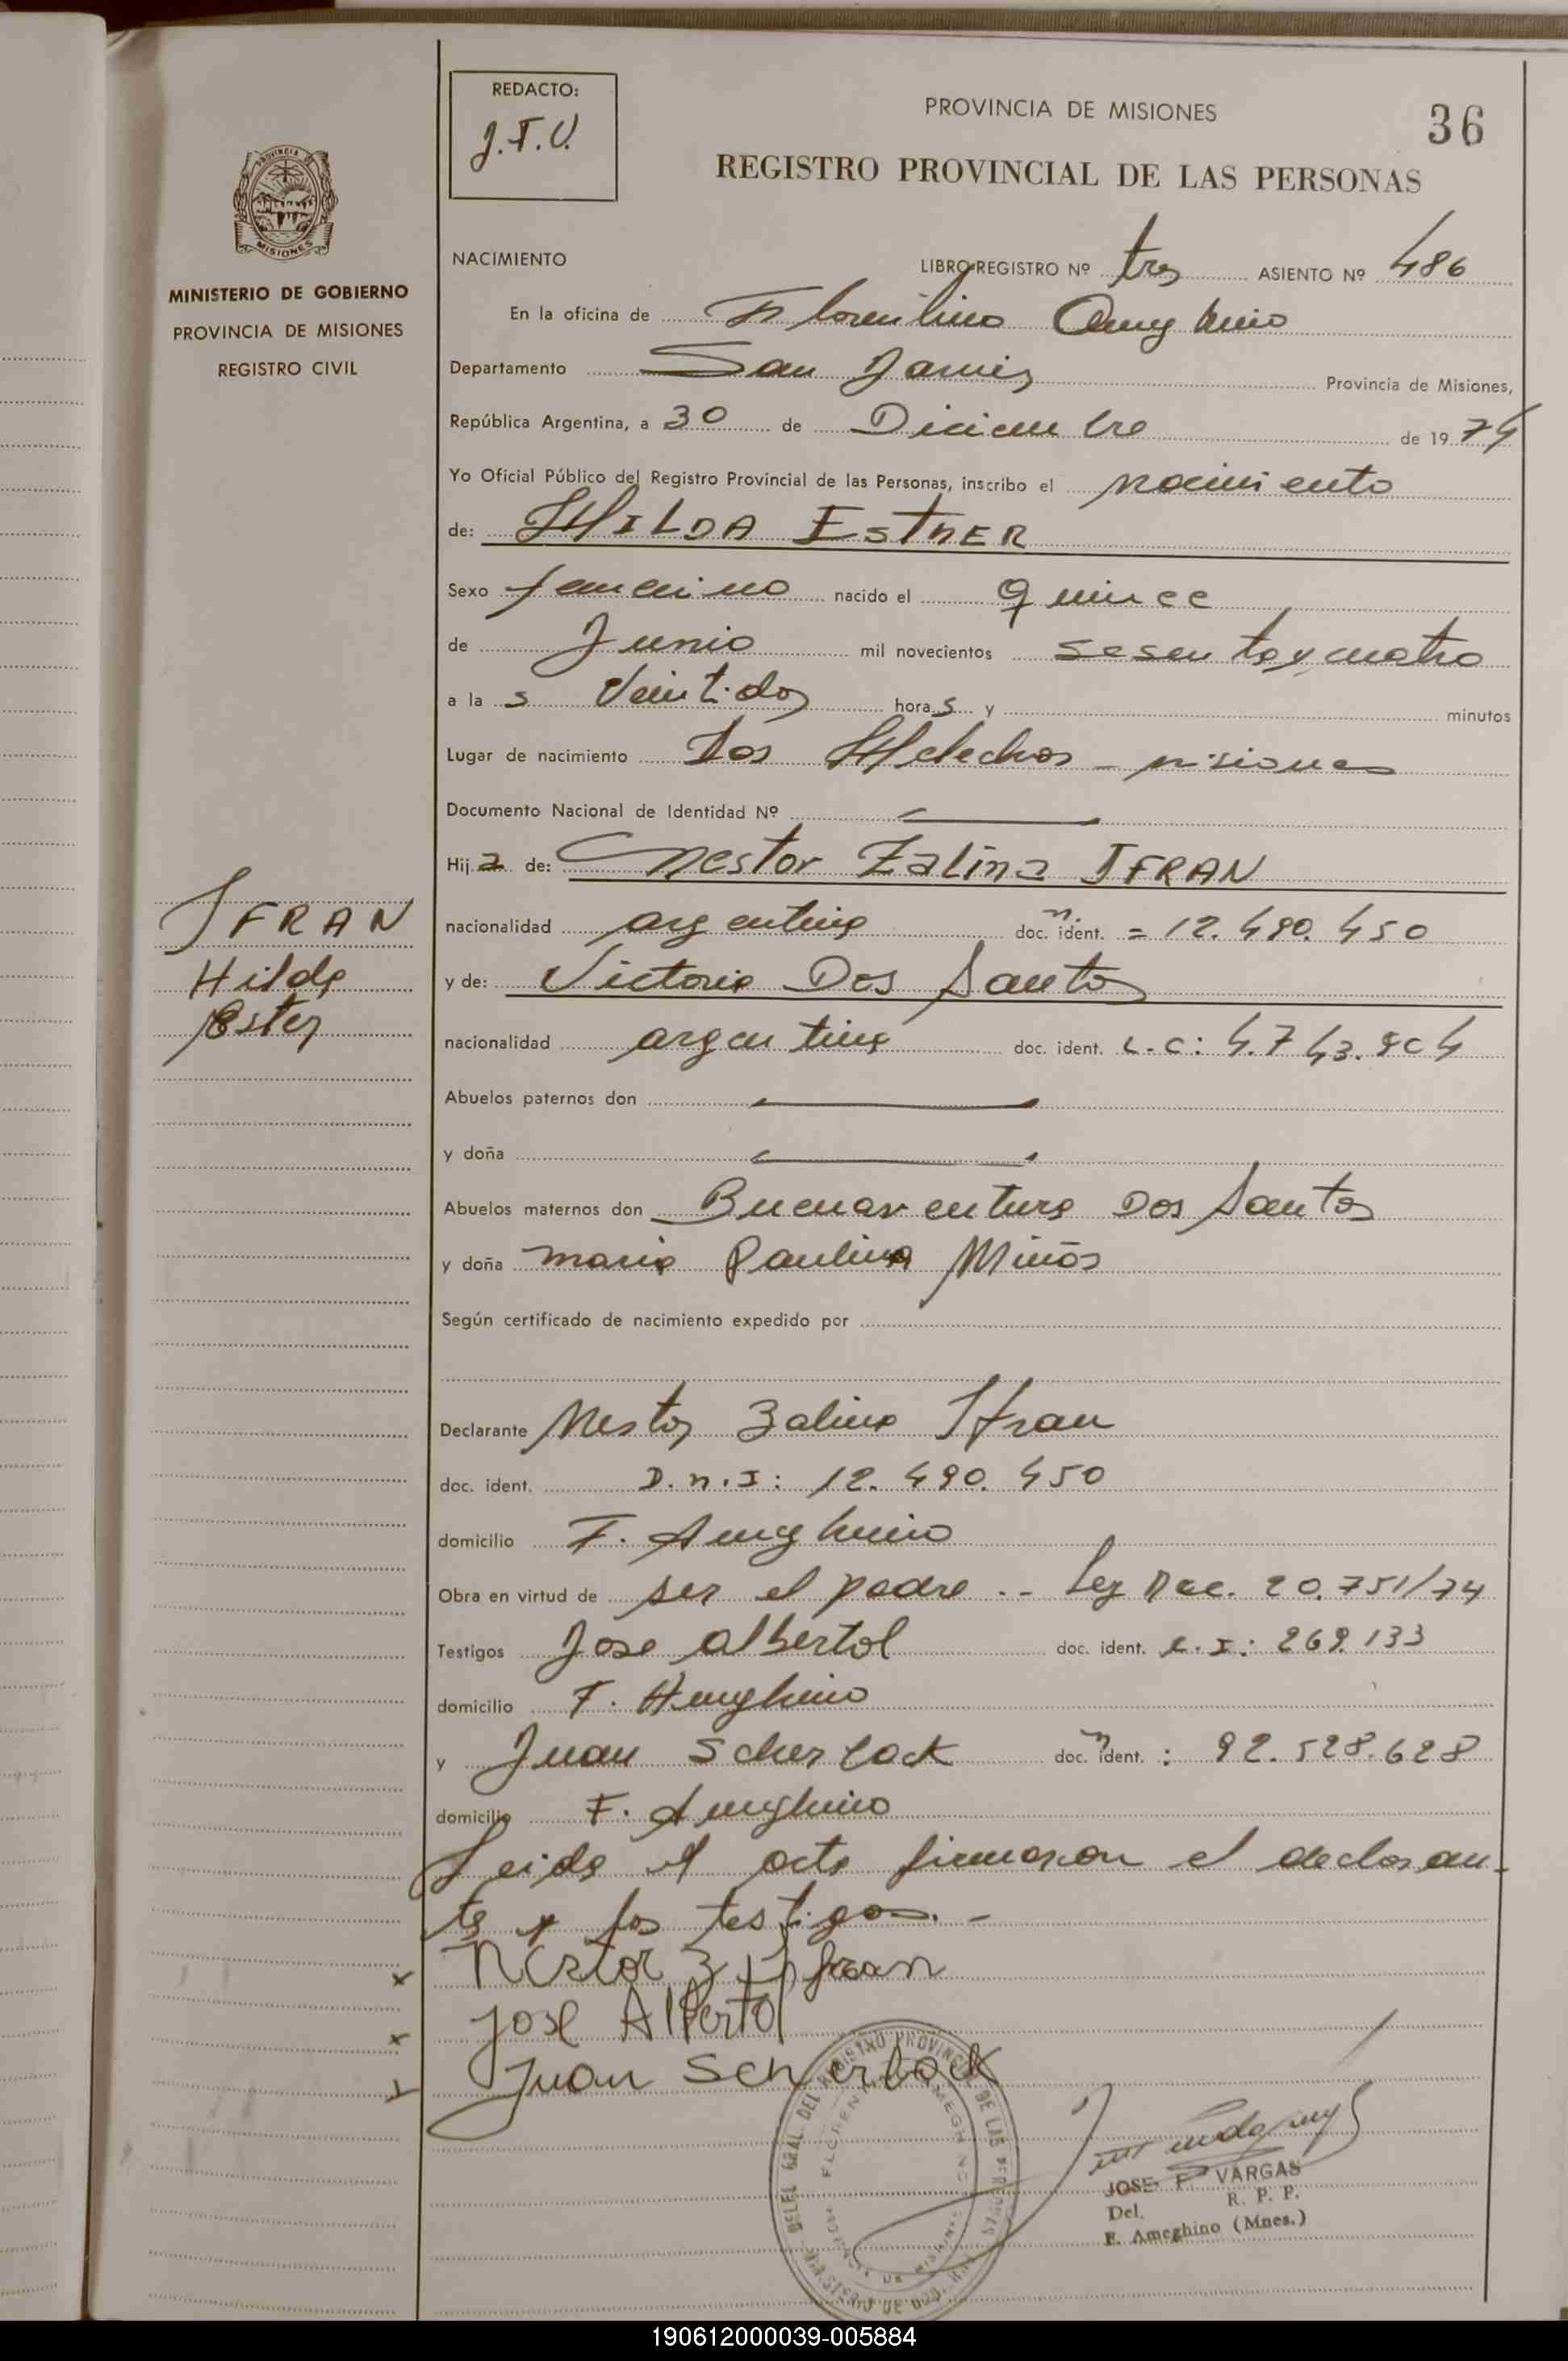 REDACTO:
J.F.V.
PROVINCIA DE MISIONES
36
REGISTRO PROVINCIAL DE LAS PERSONAS
PROVINCIA DE
MISIONES
MINISTERIO DE GOBIERNO
PROVINCIA DE MISIONES
REGISTRO CIVIL
NACIMIENTO LIBRO-REGISTRO Nº tres ASIENTO Nº 486
En la oficina de Florentino Ameghino
Departamento San Javier Provincia de Misiones,
República Argentina, a 30 de Diciembre de 1974
Yo Oficial Público del Registro Provincial de las Personas, inscribo el nacimiento
de: HILDA ESTHER
Sexo femenino nacido el quince
de Junio mil novecientos sesenta y cuatro
a la s veintidos hora s y minutos
Lugar de nacimiento Los Helechos - misiones
Documento Nacional de Identidad Nº
Hij a de: Nestor Zalina IFRAN
nacionalidad argentina doc. n. ident. = 12.490.450
IFRAN
Hilda
Ester
y de: Victoria Dos Santos
nacionalidad argentina doc. ident. L.C: 4.743.804
Abuelos paternos don
y doña
Abuelos maternos don Buenaventura Dos Santos
y doña maria Paulina Miños
Según certificado de nacimiento expedido por
Declarante Nestor Zalina Ifran
doc. ident. D.n.I: 12.490.450
domicilio F. Ameghino
Obra en virtud de ser el padre .- Ley Nac. 20.751/74
Testigos Jose Albertol doc. ident. C.I: 269.133
domicilio F. Ameghino
y Juan Scherlock doc. n ident. : 92.528.628
domicilio F. Ameghino
Leida el acta firmaron el declaran-
te y los testigos.-
x Nestor Z Ifran
x Jose Albertol
x Juan Scherlock
JOSE F. VARGAS
Del. R. P. P.
F. Ameghino (Mnes.)
190612000039-005884